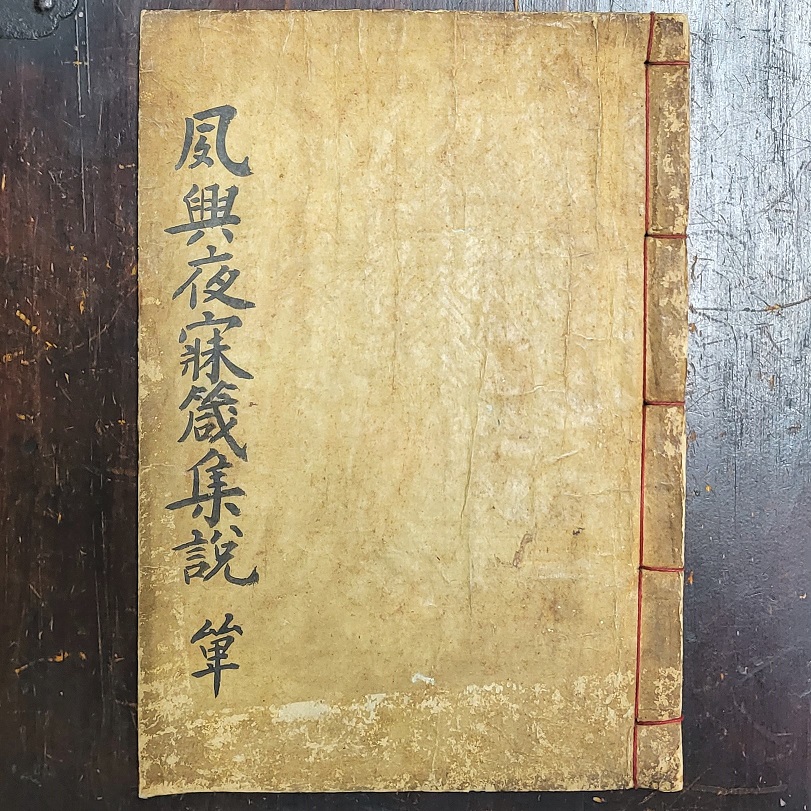 夙興夜寐箴集說 單